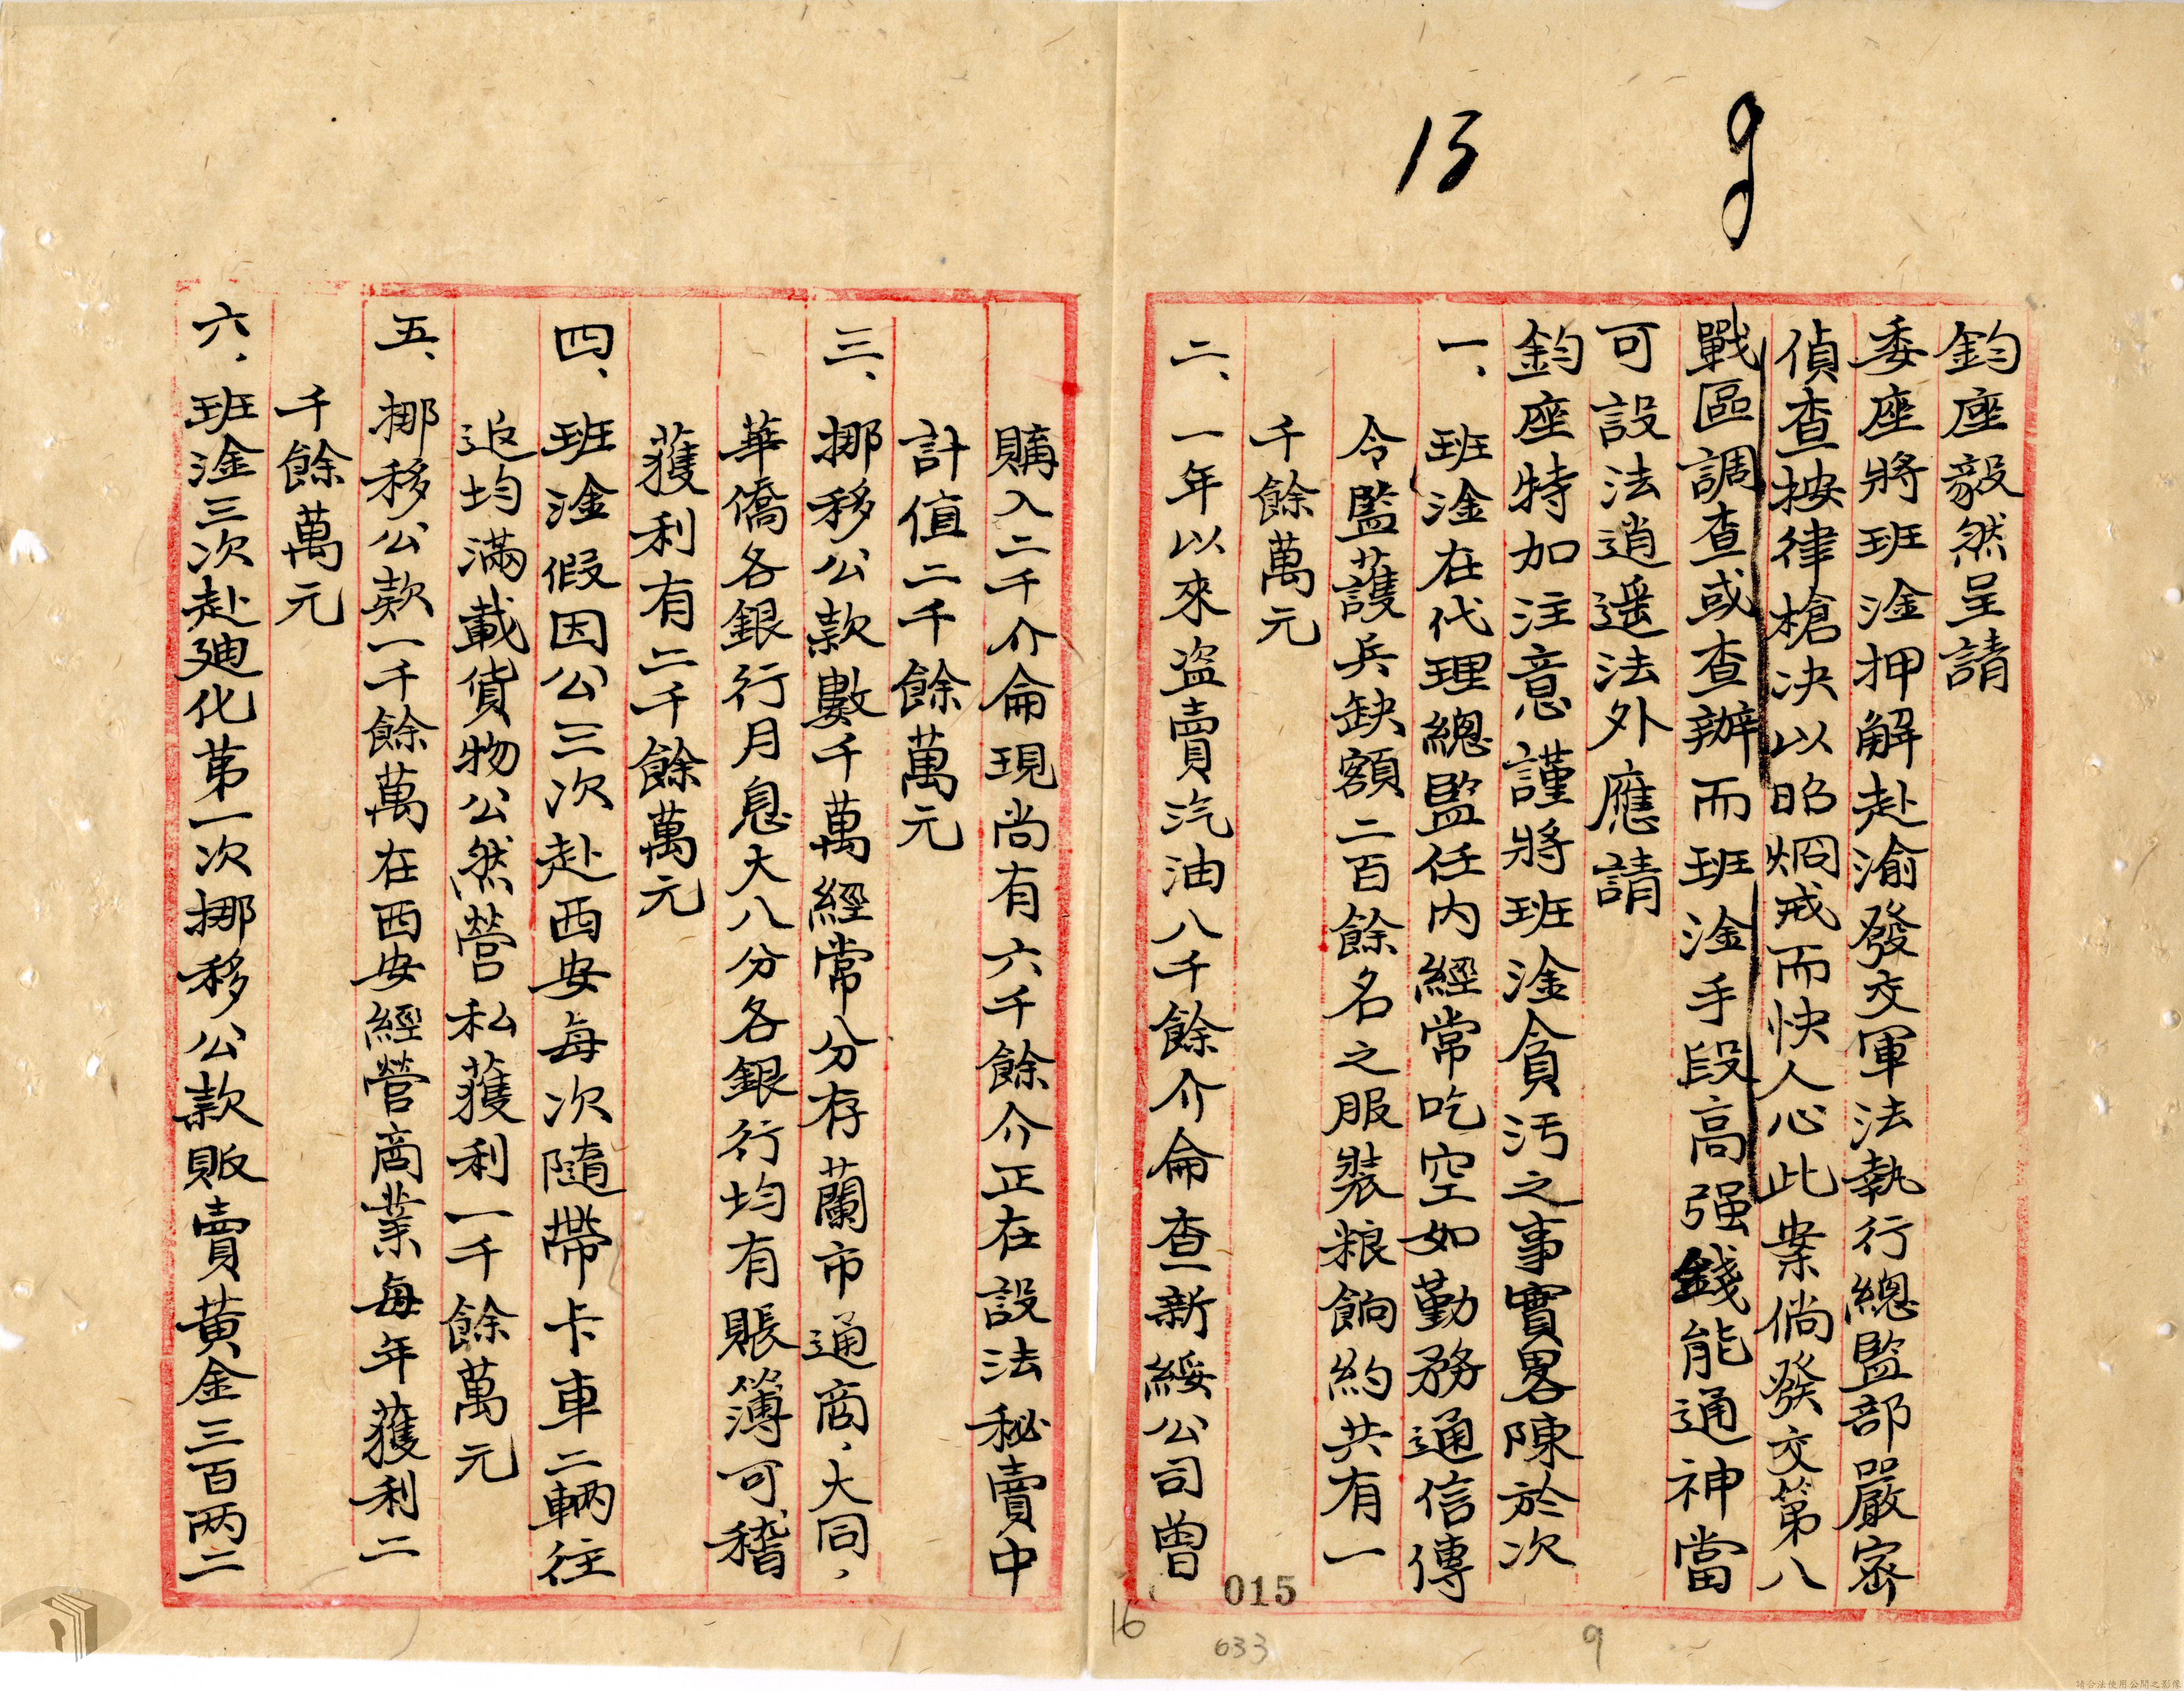 13 9
鈞座毅然呈請
委座將班淦押解赴渝發交軍法執行總監部嚴密
偵查按律槍决以昭烱戒而快人心此案倘發交第八
戰區調查或查辦而班淦手段高强錢能通神當
可設法逍遥法外應請
鈞座特加注意謹將班淦貪污之事實畧陳於次
一、班淦在代理總監任内經常吃空如勤務通信傳
令監護兵缺額二百餘名之服裝粮餉約共有一
千餘萬元
二、一年以來盗賣汽油八千餘介侖查新綏公司曾
購入二千介侖現尚有六千餘介正在設法秘賣中
計值二千餘萬元
三、挪移公款數千萬經常分存蘭市通商、大同、
華僑各銀行月息大八分各銀行均有賬簿可稽
獲利有二千餘萬元
四、班淦假因公三次赴西安每次隨帶卡車二輛往
返均滿載貨物公然營私獲利一千餘萬元
五、挪移公款一千餘萬在西安經營商業每年獲利二
千餘萬元
六、班淦三次赴廸化第一次挪移公款販賣黄金三百两二
015
16
633
9
請合法使用公開之影像